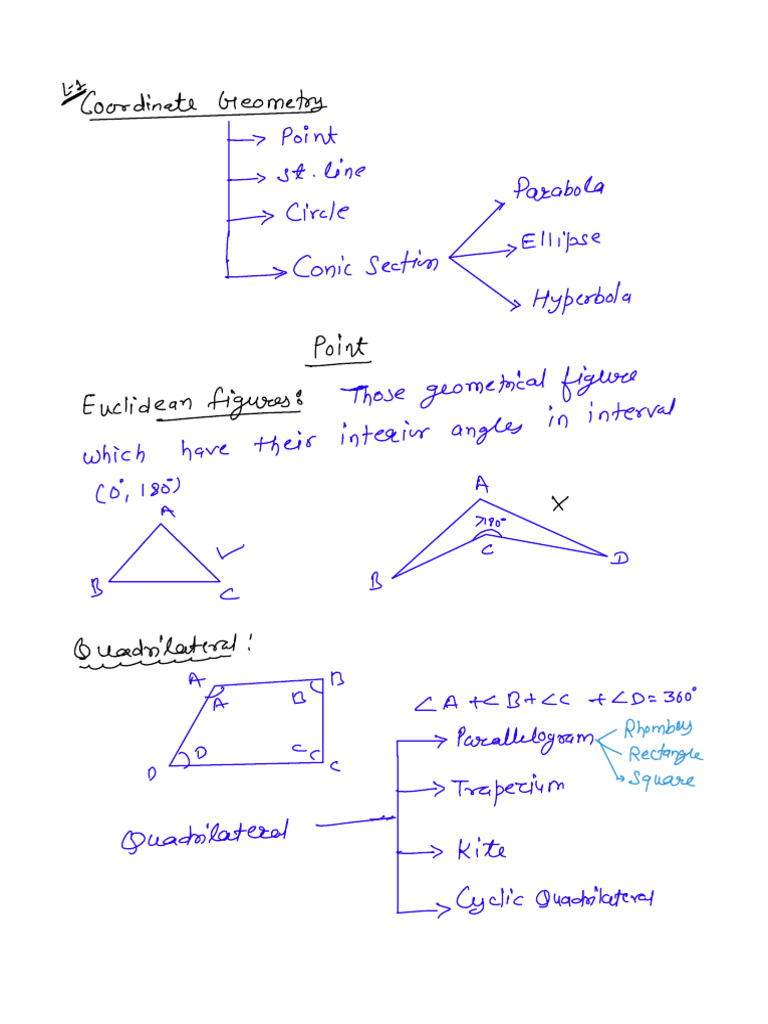 L-1
Coordinate Geometry
Point
st. line
Circle
Conic Section
Parabola
Ellipse
Hyperbola
Point
Euclidean figures: Those geometrical figure
which have their interior angles in interval
(0°, 180°)
A
B
C
A
>180°
C
B
D
×
Quadrilateral:
A
B
A
B
D
C
D
C
∠A +∠B+∠C +∠D=360°
Parallelogram
Rhombus
Rectangle
Square
Trapezium
Quadrilateral
Kite
Cyclic Quadrilateral